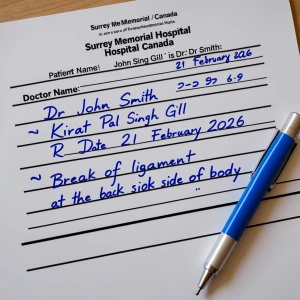 Surrey Me Memorial / Canada
Surrey Memorial Hospital
Hospital Canada
Patient Name: John Sing Gill is Dr: Dr Smith:
21 February 2026
Doctor Name:
Dr John Smith
~ Kirat Pal Singh Gill
R Date 21 February 2026
~ Break of ligament
at the back siok side of body